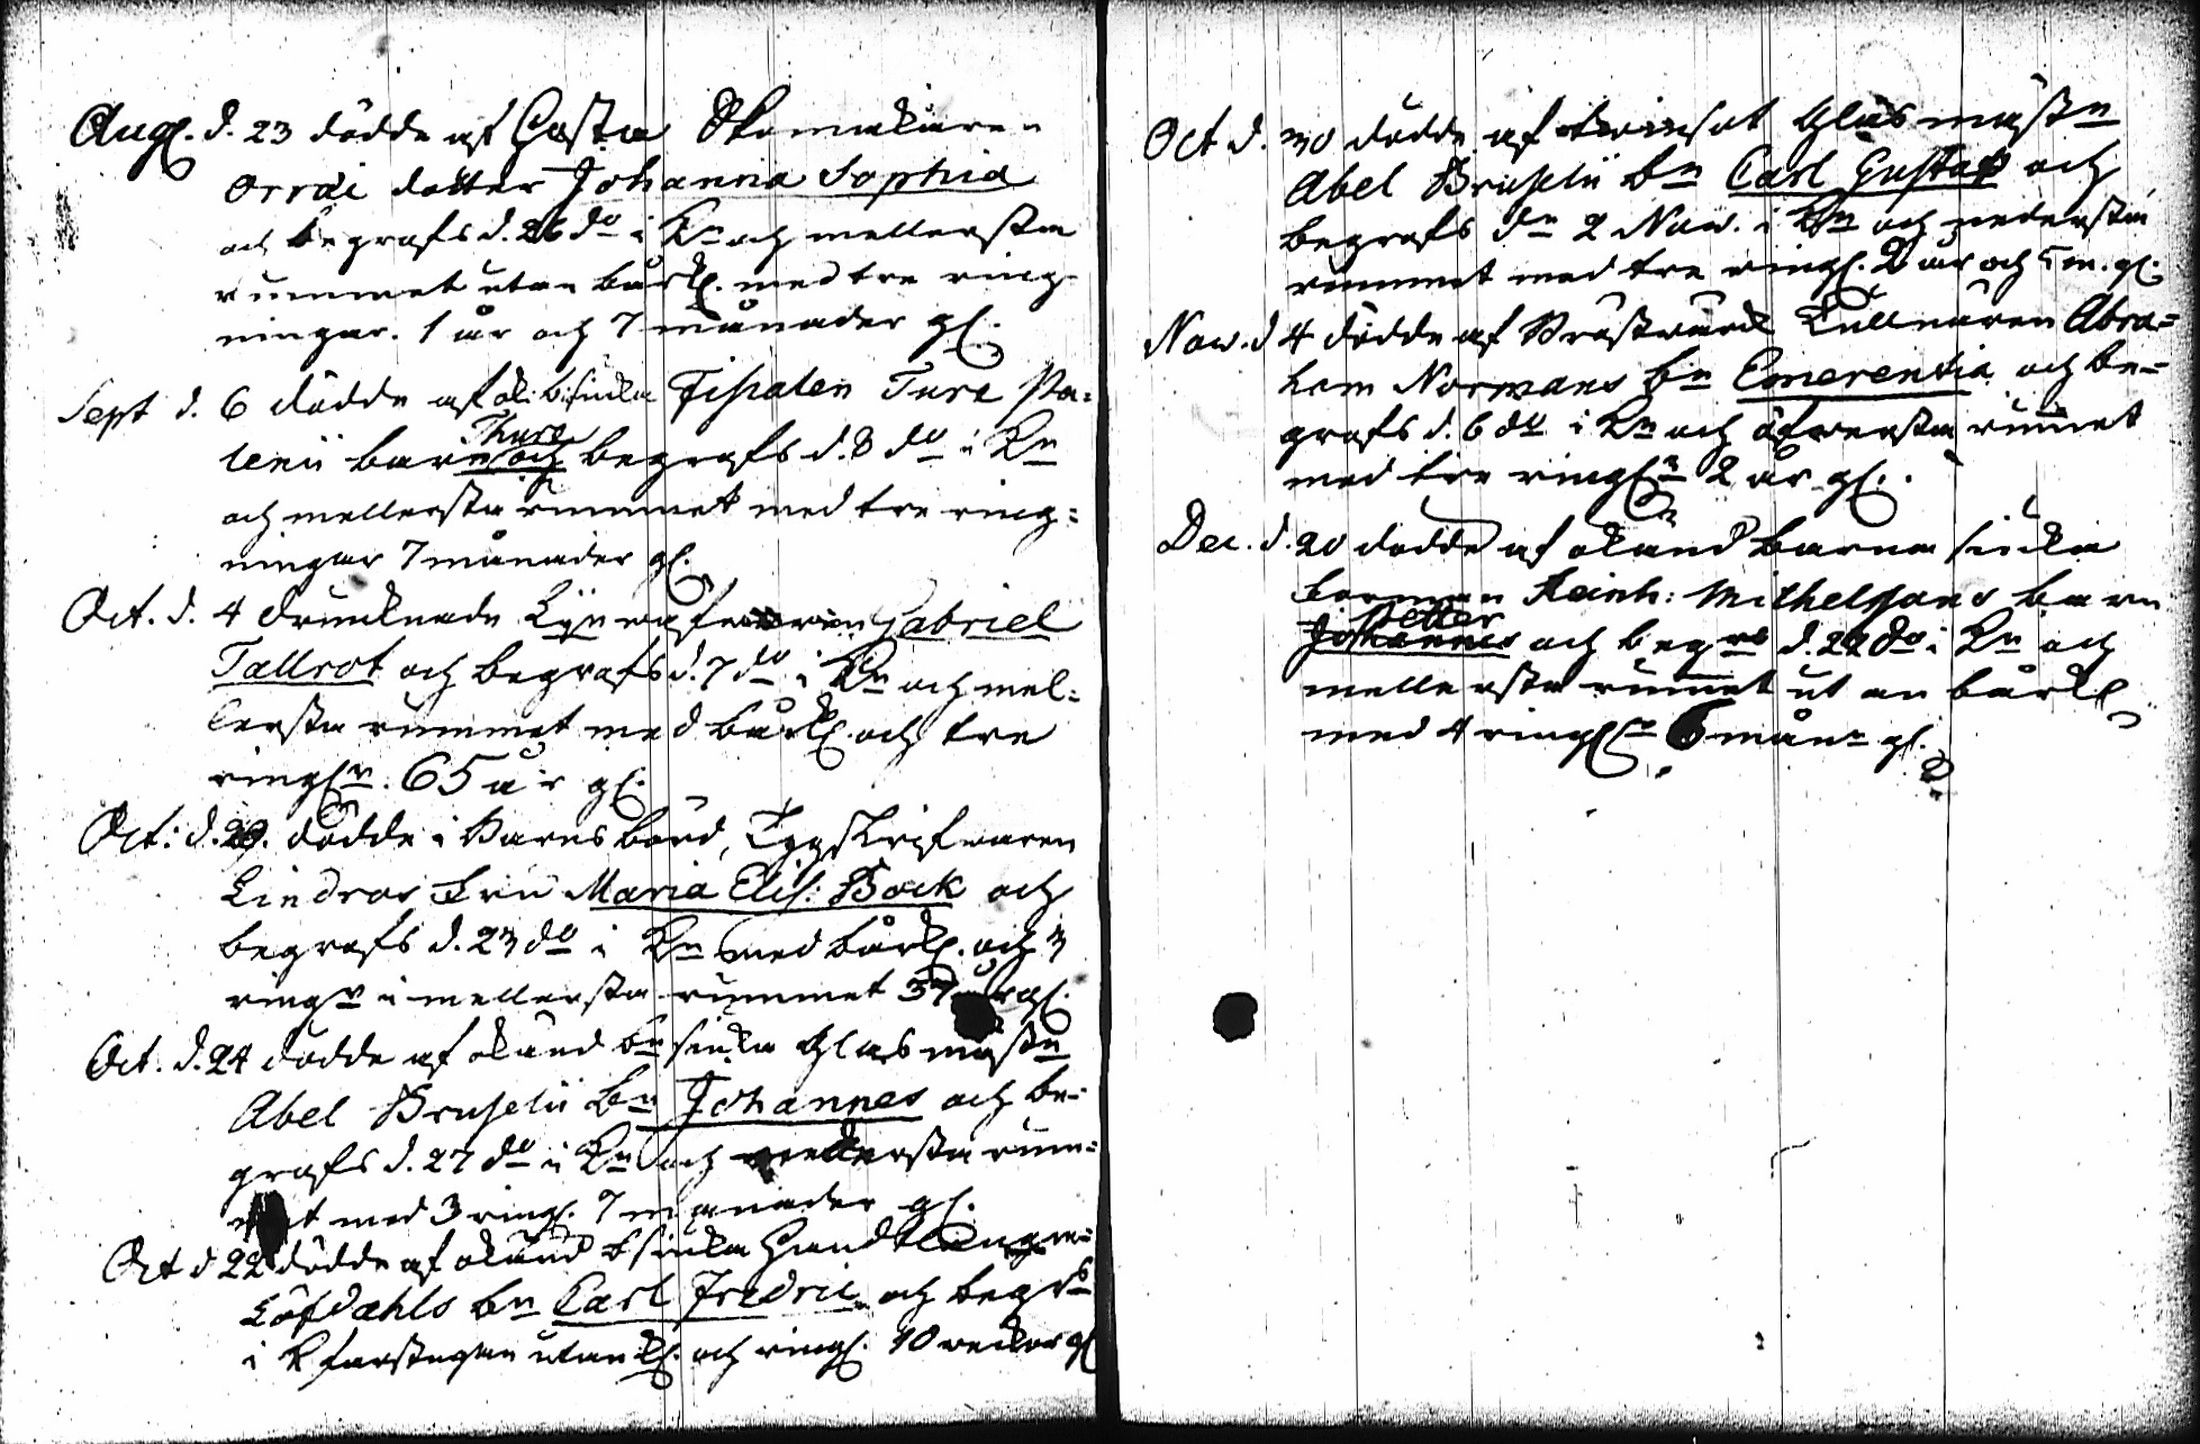 Aug. d. 23 dödde af Hosta Skomakaren
Orrai dotter Johanna Sophia
och begrofs d. 26 do i Kn och mellersta
rummet utan bårkl. med tre ring-
ningar. 1 år och 7 månader gl.
Sept d. 6 dödde af ok: b: siuka Fiscalen Ture Pa=
lenii barn Thure och begrofs d. 8 do i Kn
och mellersta rummet med tre ring=
ningar 7 månader gl.
Oct. d. 4 drunknade Gabriel
Tallrot och begrofs d. 7 do i Kn och mel=
lersta rummet med bårkl. och tre
ringr. 65 år gl.
Oct: d. 20. dödde i Barnsbörd, Tygskrifwaren
Lindros Fru Maria Elis: Bock och
begrofs d. 23 do i Kn med bårkl. och 3
ringr i mellersta rummet 37 år gl.
Oct. d. 24 dödde af okänd bn siuka Glasmästn
Abel Bruselii bn Johannes och be-
grofs d. 27 do i Kn och nedersta rum=
met med 3 ring. 7 månader gl.
Oct d 22 dödde af okänd b siuka
Löfdahls bn Carl Fredric och begrs
i K farstugan utan kl. och ring. 10 weckor gl
Oct d. 30 dödde af twinsot Glasmästn
Abel Bruselii bn Carl Gustaf och
begrofs dn 2 Now. i Kn och nedersta
rummet med tre ring. 2 år och 5 m. gl.
Now. d 4 dödde af Bröstwärck Källnären Abra=
ham Normans bn Emerentia och be=
grofs d. 6 do i Kn och öfwersta rumet
med tre ringr 2 år gl.
Dec. d. 20 dödde af okänd barna siuka
Forman Reinh: Mithelssons barn
Petter
Johannes och begrs d. 22 do i Kn och
mellersta rumet utan bårkl
med 4 ringr 6 månr gl.